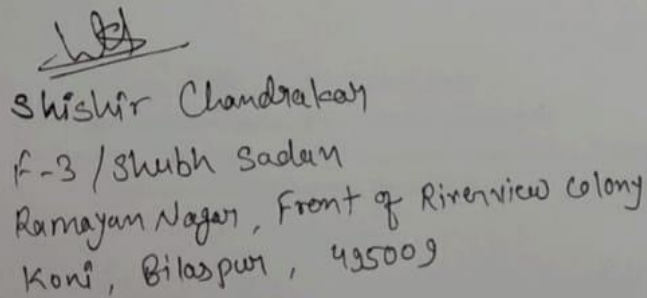 Shishir Chandrakar
F-3 / Shubh Sadan
Ramayan Nagar, Front of Riverview Colony
Koni, Bilaspur, 495009